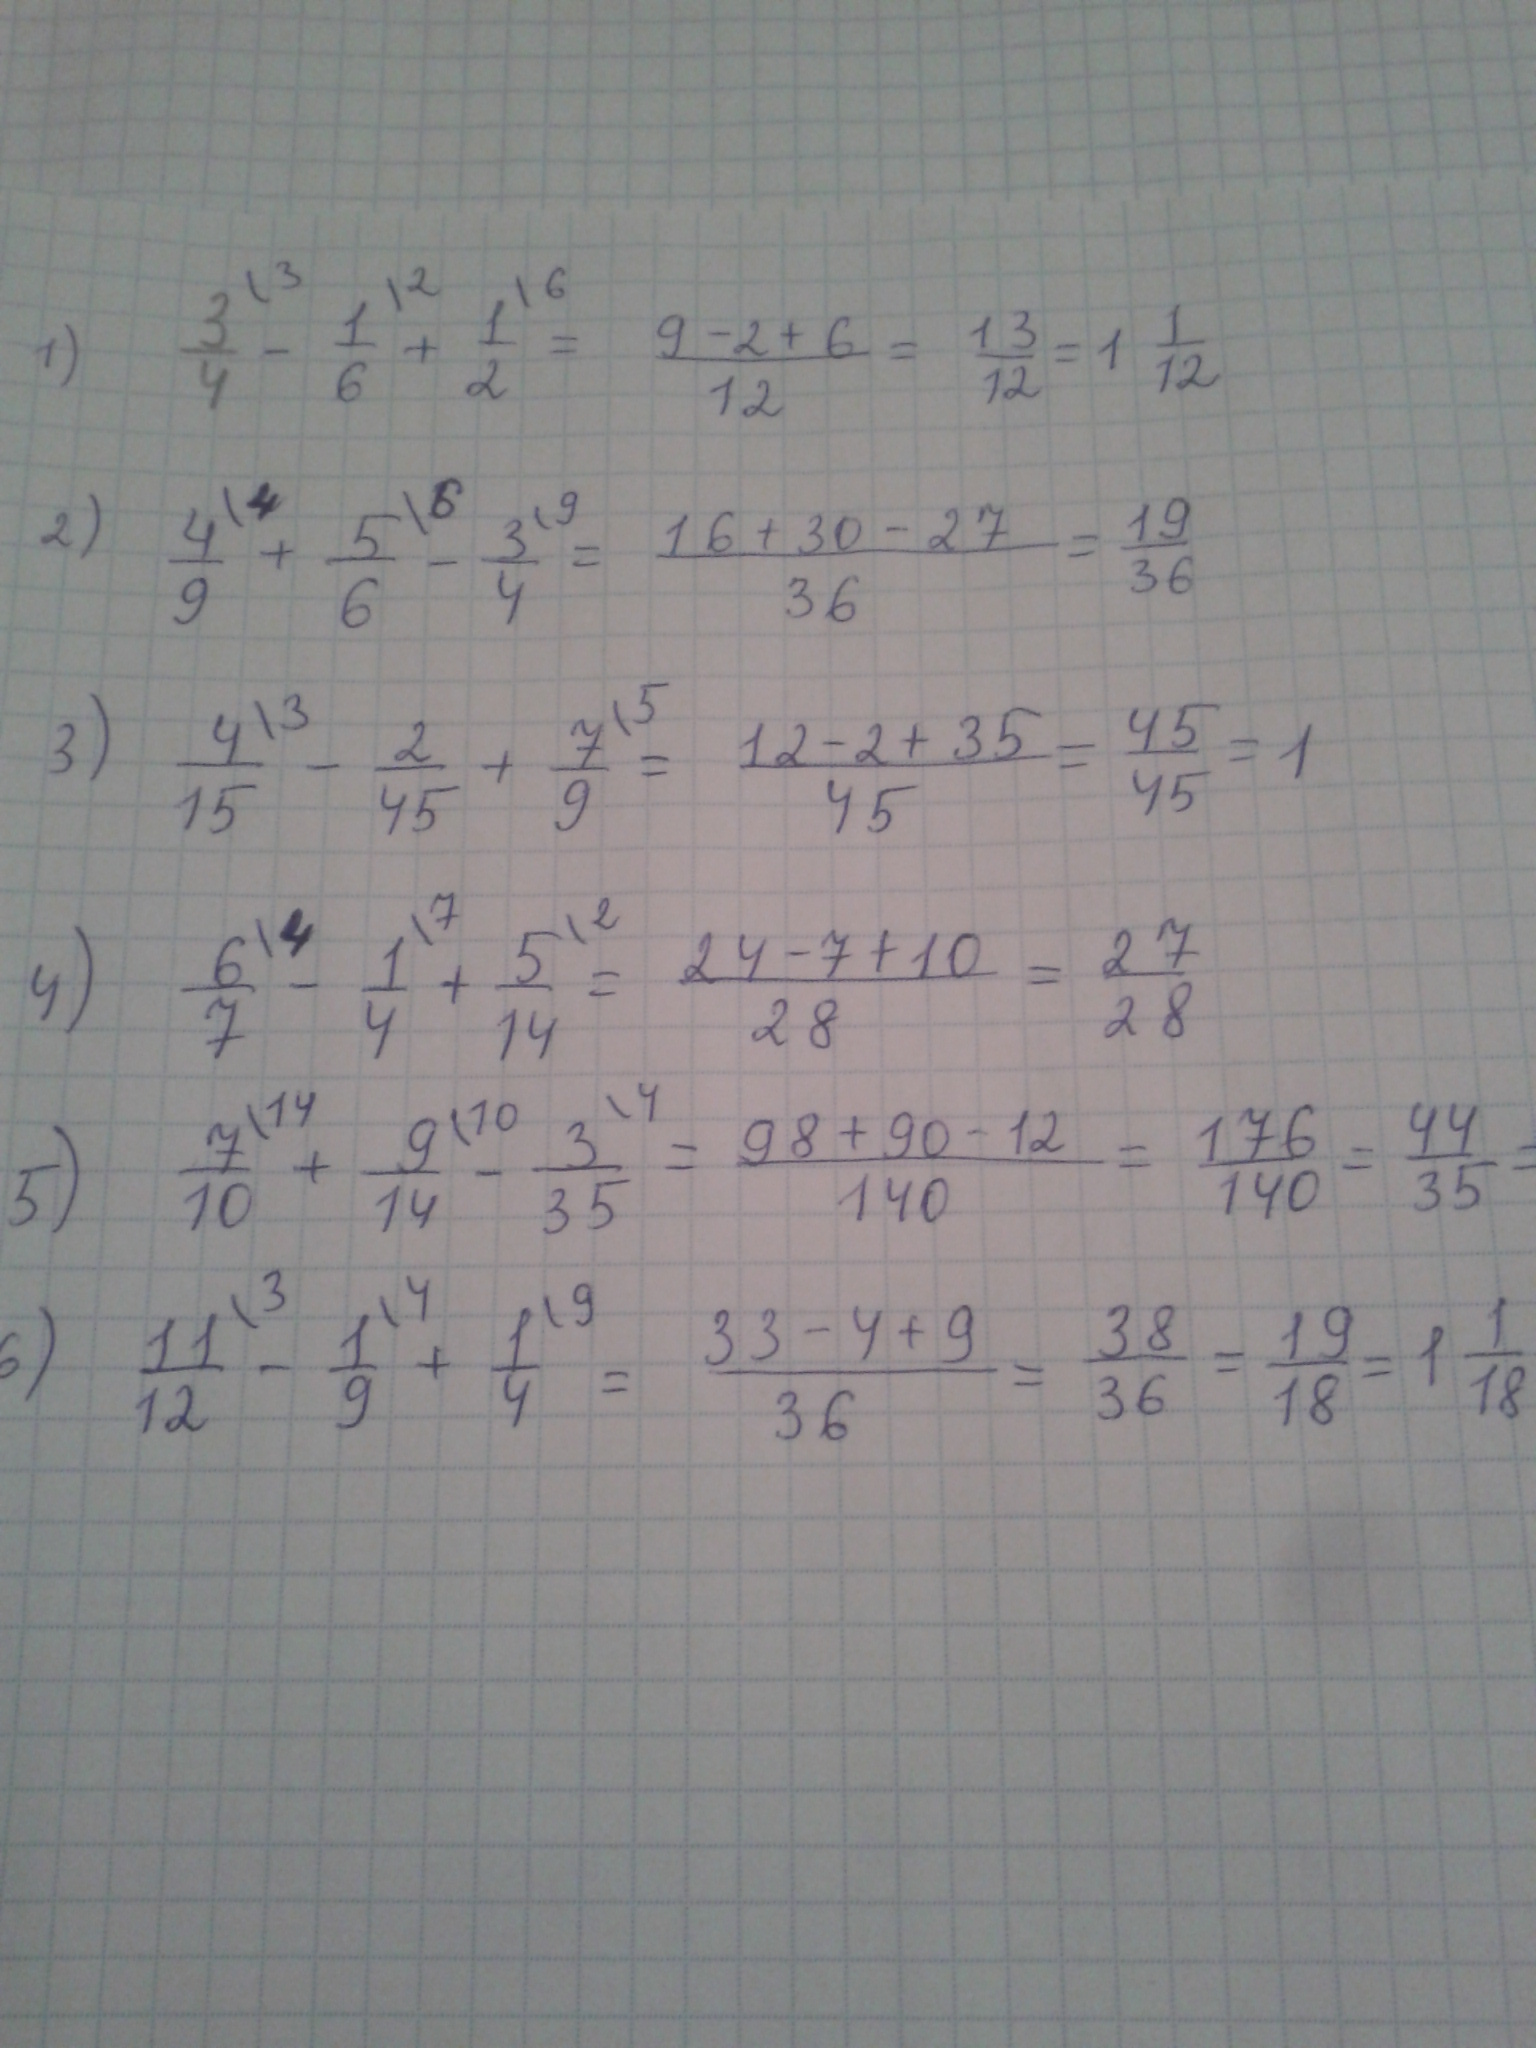 1) 3/4\3 - 1/6\2 + 1/2\6 = (9-2+6)/12 = 13/12 = 1 1/12
2) 4/9\4 + 5/6\6 - 3/4\9 = (16+30-27)/36 = 19/36
3) 4/15\3 - 2/45 + 7/9\5 = (12-2+35)/45 = 45/45 = 1
4) 6/7\4 - 1/4\7 + 5/14\2 = (24-7+10)/28 = 27/28
5) 7/10\14 + 9/14\10 - 3/35\4 = (98+90-12)/140 = 176/140 = 44/35 =
6) 11/12\3 - 1/9\4 + 1/4\9 = (33-4+9)/36 = 38/36 = 19/18 = 1 1/18